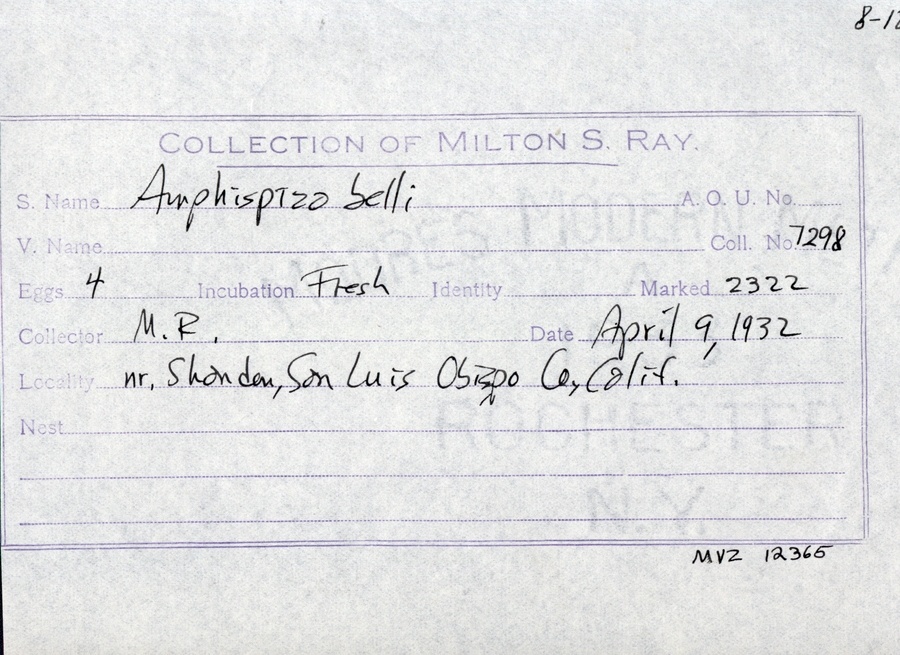 8-12
COLLECTION OF MILTON S. RAY.
S. Name Amphispiza belli A. O. U. No.
V. Name Coll. No. 7298
Eggs 4 Incubation Fresh Identity Marked 2322
Collector M. R. Date April 9, 1932
Locality nr. Shandon, San Luis Obispo Co., Calif.
Nest
MODERN
ROCHESTER
N.Y.
MVZ 12365